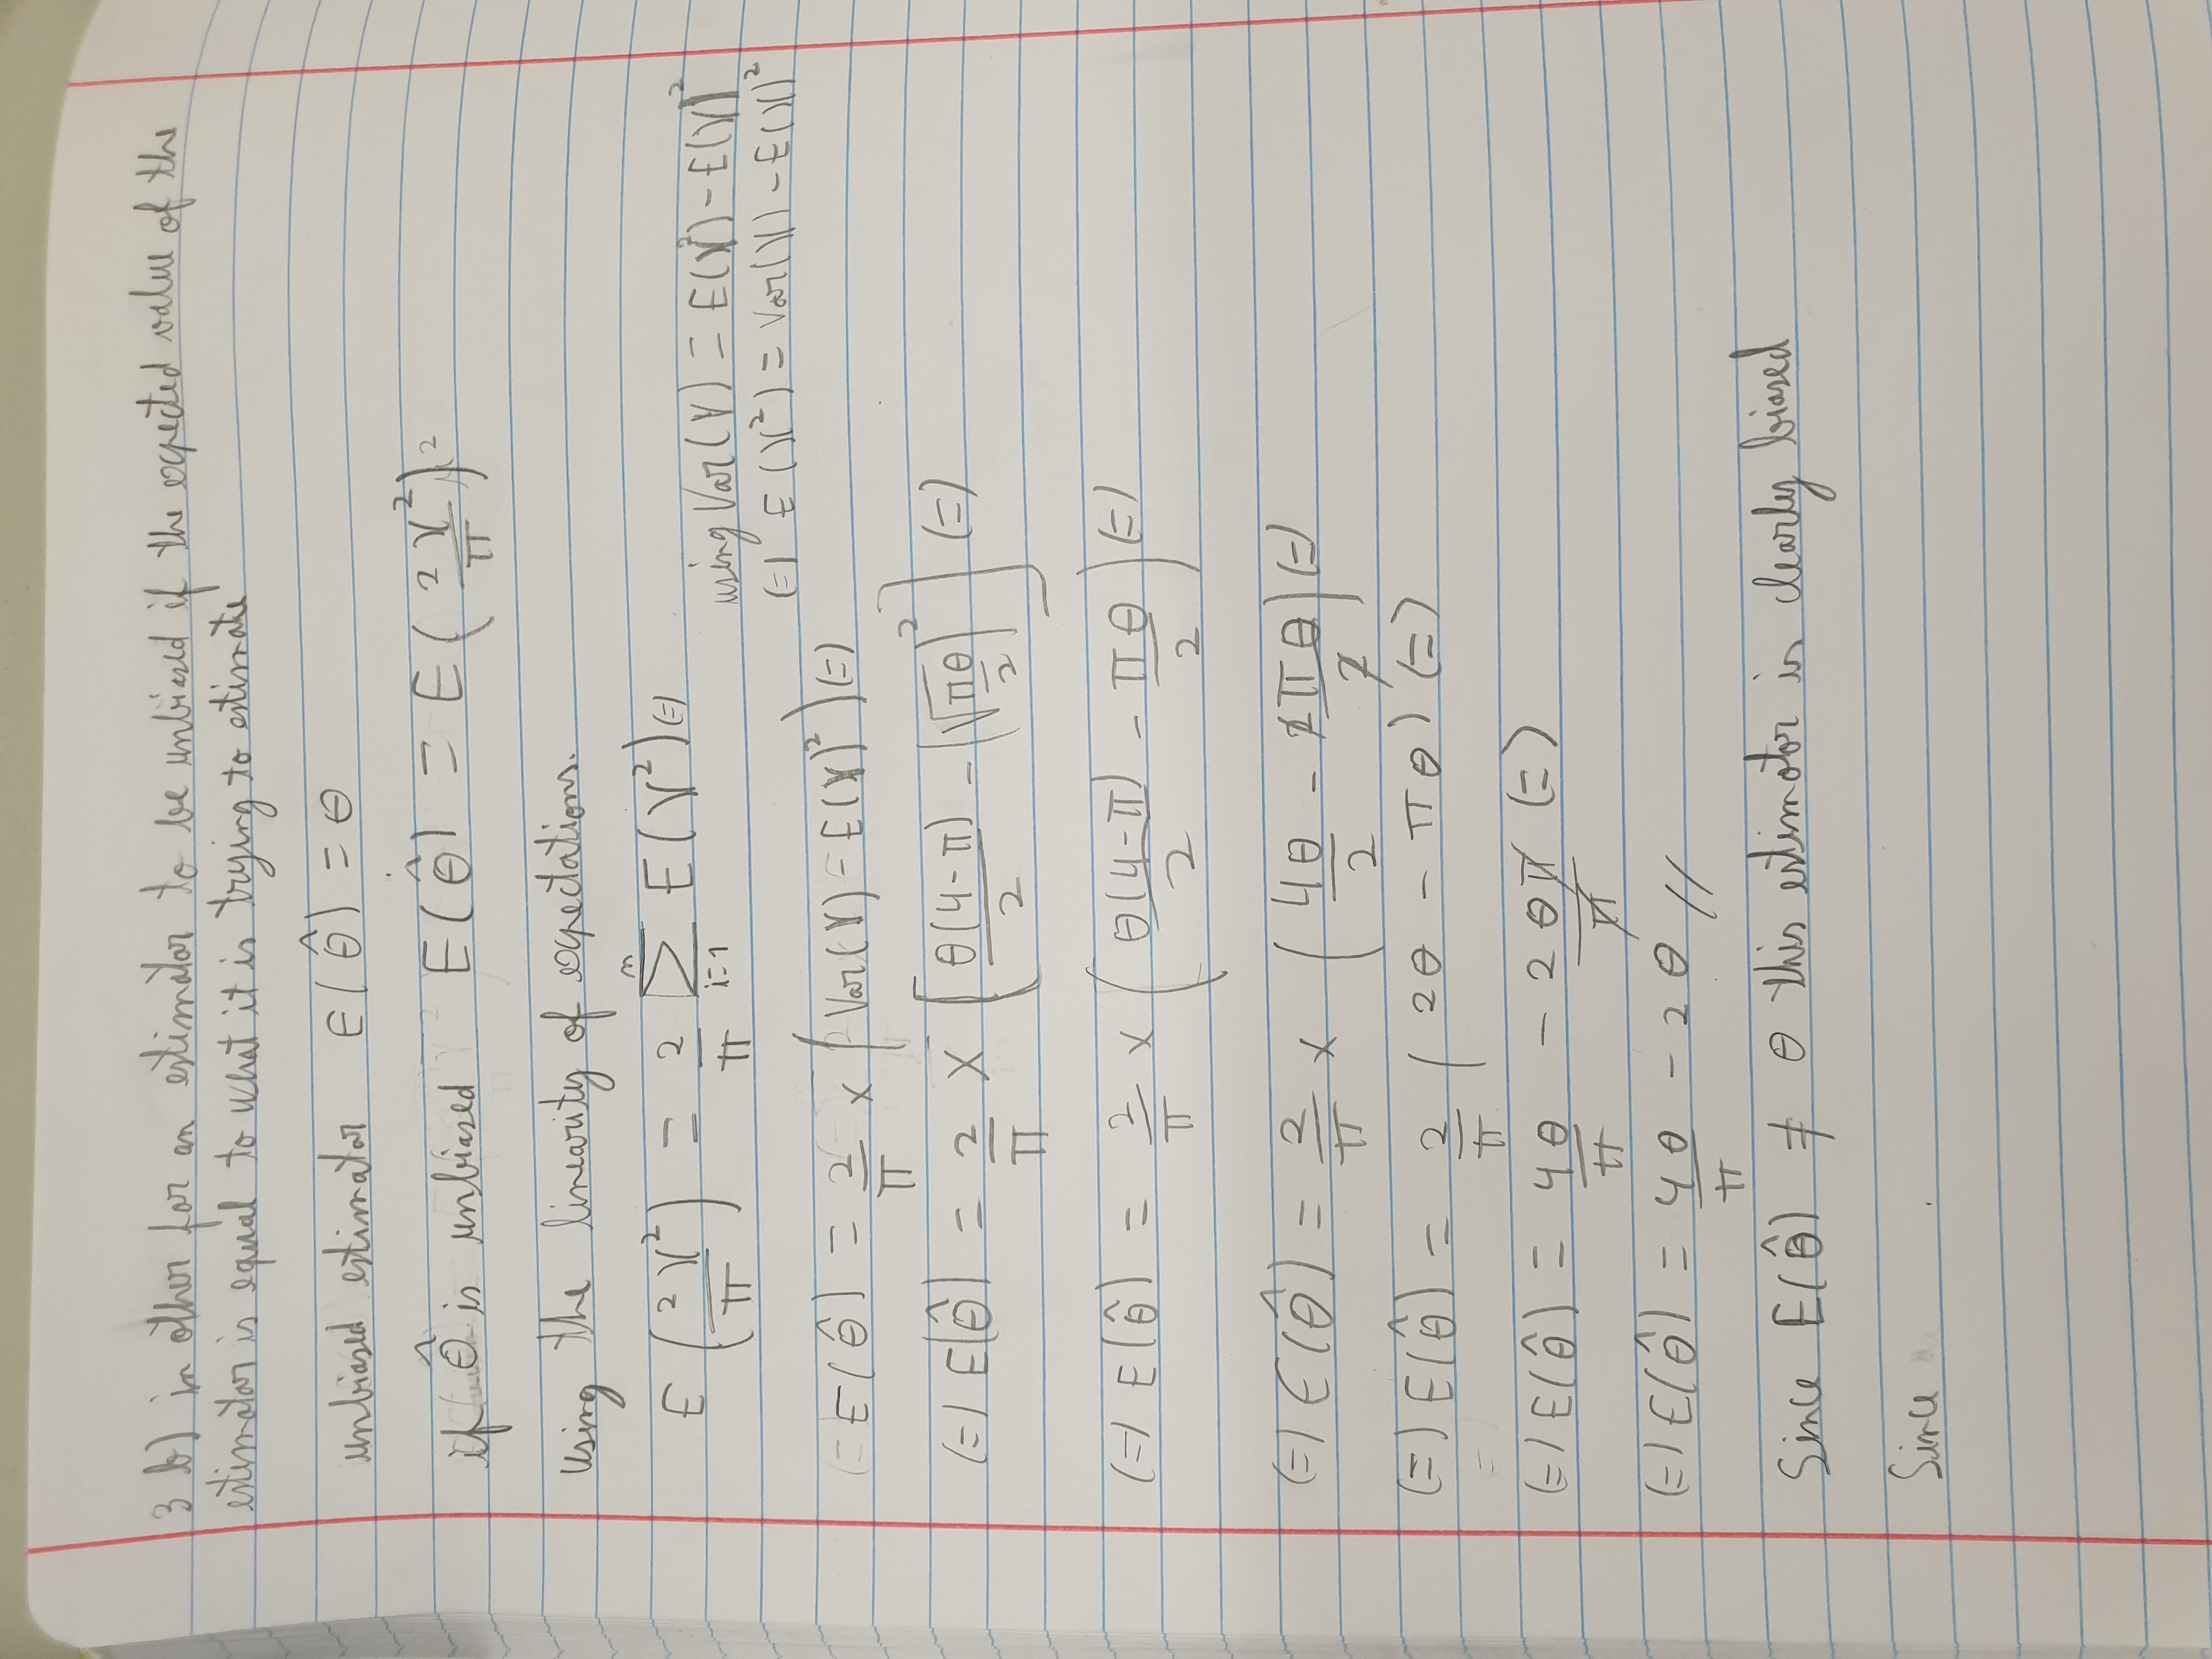 3 b) in other for an estimator to be unbiased if the expected value of the
estimator is equal to what it is trying to estimate
unbiased estimator E(θ̂) = θ
if θ̂ is unbiased E(θ̂) = E(2Y²/π)²
using the linearity of expectations.
E(2Y²/π) = 2/π Σ_{i=1}^{n} E(Y²) (=)
using Var(Y) = E(Y²) - E(Y)²
(=) E(Y²) = Var(Y) - E(Y)²
= E(θ̂) = 2/π × (Var(Y) - E(Y)²) (=)
(=) E(θ̂) = 2/π × [θ(4-π)/2 - (√(πθ/2))²] (=)
(=) E(θ̂) = 2/π × (θ(4-π)/2 - πθ/2) (=)
(=) E(θ̂) = 2/π × (4θ/2 - 2πθ/2) (=)
(=) E(θ̂) = 2/π (2θ - πθ) (=)
(=) E(θ̂) = 4θ/π - 2θπ/π (=)
(=) E(θ̂) = 4θ/π - 2θ //
Since E(θ̂) ≠ θ this estimator is clearly biased
Since